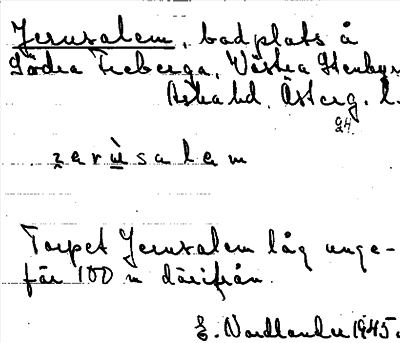 Jerusalem, badplats å
Södra Freberga, Västra Stenby
Aska hd. Österg. l.
gH.
zerùsalem
Torpet Jerusalem låg unge-
fär 100 m därifrån.
E. Nordlander 1945.